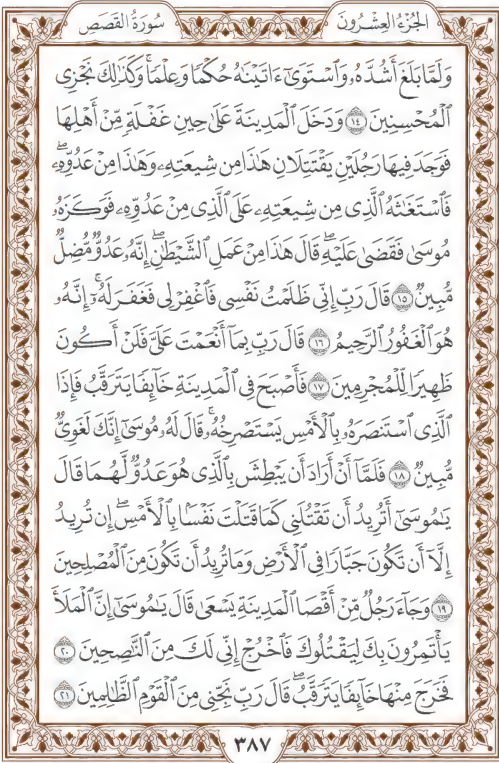 الجُزْءُ العِشْرُونَ
سُورَةُ القَصَصِ
وَلَمَّا بَلَغَ أَشُدَّهُۥ وَٱسْتَوَىٰٓ ءَاتَيْنَٰهُ حُكْمًا وَعِلْمًاۚ وَكَذَٰلِكَ نَجْزِى
ٱلْمُحْسِنِينَ ١٤ وَدَخَلَ ٱلْمَدِينَةَ عَلَىٰ حِينِ غَفْلَةٍ مِّنْ أَهْلِهَا
فَوَجَدَ فِيهَا رَجُلَيْنِ يَقْتَتِلَانِ هَٰذَا مِن شِيعَتِهِۦ وَهَٰذَا مِنْ عَدُوِّهِۦۖ
فَٱسْتَغَٰثَهُ ٱلَّذِى مِن شِيعَتِهِۦ عَلَى ٱلَّذِى مِنْ عَدُوِّهِۦ فَوَكَزَهُۥ
مُوسَىٰ فَقَضَىٰ عَلَيْهِۖ قَالَ هَٰذَا مِنْ عَمَلِ ٱلشَّيْطَٰنِۖ إِنَّهُۥ عَدُوٌّ مُّضِلٌّ
مُّبِينٌ ١٥ قَالَ رَبِّ إِنِّى ظَلَمْتُ نَفْسِى فَٱغْفِرْ لِى فَغَفَرَ لَهُۥٓۚ إِنَّهُۥ
هُوَ ٱلْغَفُورُ ٱلرَّحِيمُ ١٦ قَالَ رَبِّ بِمَآ أَنْعَمْتَ عَلَىَّ فَلَنْ أَكُونَ
ظَهِيرًا لِّلْمُجْرِمِينَ ١٧ فَأَصْبَحَ فِى ٱلْمَدِينَةِ خَآئِفًا يَتَرَقَّبُ فَإِذَا
ٱلَّذِى ٱسْتَنصَرَهُۥ بِٱلْأَمْسِ يَسْتَصْرِخُهُۥۚ قَالَ لَهُۥ مُوسَىٰٓ إِنَّكَ لَغَوِىٌّ
مُّبِينٌ ١٨ فَلَمَّآ أَنْ أَرَادَ أَن يَبْطِشَ بِٱلَّذِى هُوَ عَدُوٌّ لَّهُمَا قَالَ
يَٰمُوسَىٰٓ أَتُرِيدُ أَن تَقْتُلَنِى كَمَا قَتَلْتَ نَفْسًۢا بِٱلْأَمْسِۖ إِن تُرِيدُ
إِلَّآ أَن تَكُونَ جَبَّارًا فِى ٱلْأَرْضِ وَمَا تُرِيدُ أَن تَكُونَ مِنَ ٱلْمُصْلِحِينَ
١٩ وَجَآءَ رَجُلٌ مِّنْ أَقْصَا ٱلْمَدِينَةِ يَسْعَىٰ قَالَ يَٰمُوسَىٰٓ إِنَّ ٱلْمَلَأَ
يَأْتَمِرُونَ بِكَ لِيَقْتُلُوكَ فَٱخْرُجْ إِنِّى لَكَ مِنَ ٱلنَّٰصِحِينَ ٢٠
فَخَرَجَ مِنْهَا خَآئِفًا يَتَرَقَّبُۖ قَالَ رَبِّ نَجِّنِى مِنَ ٱلْقَوْمِ ٱلظَّٰلِمِينَ ٢١
٣٨٧